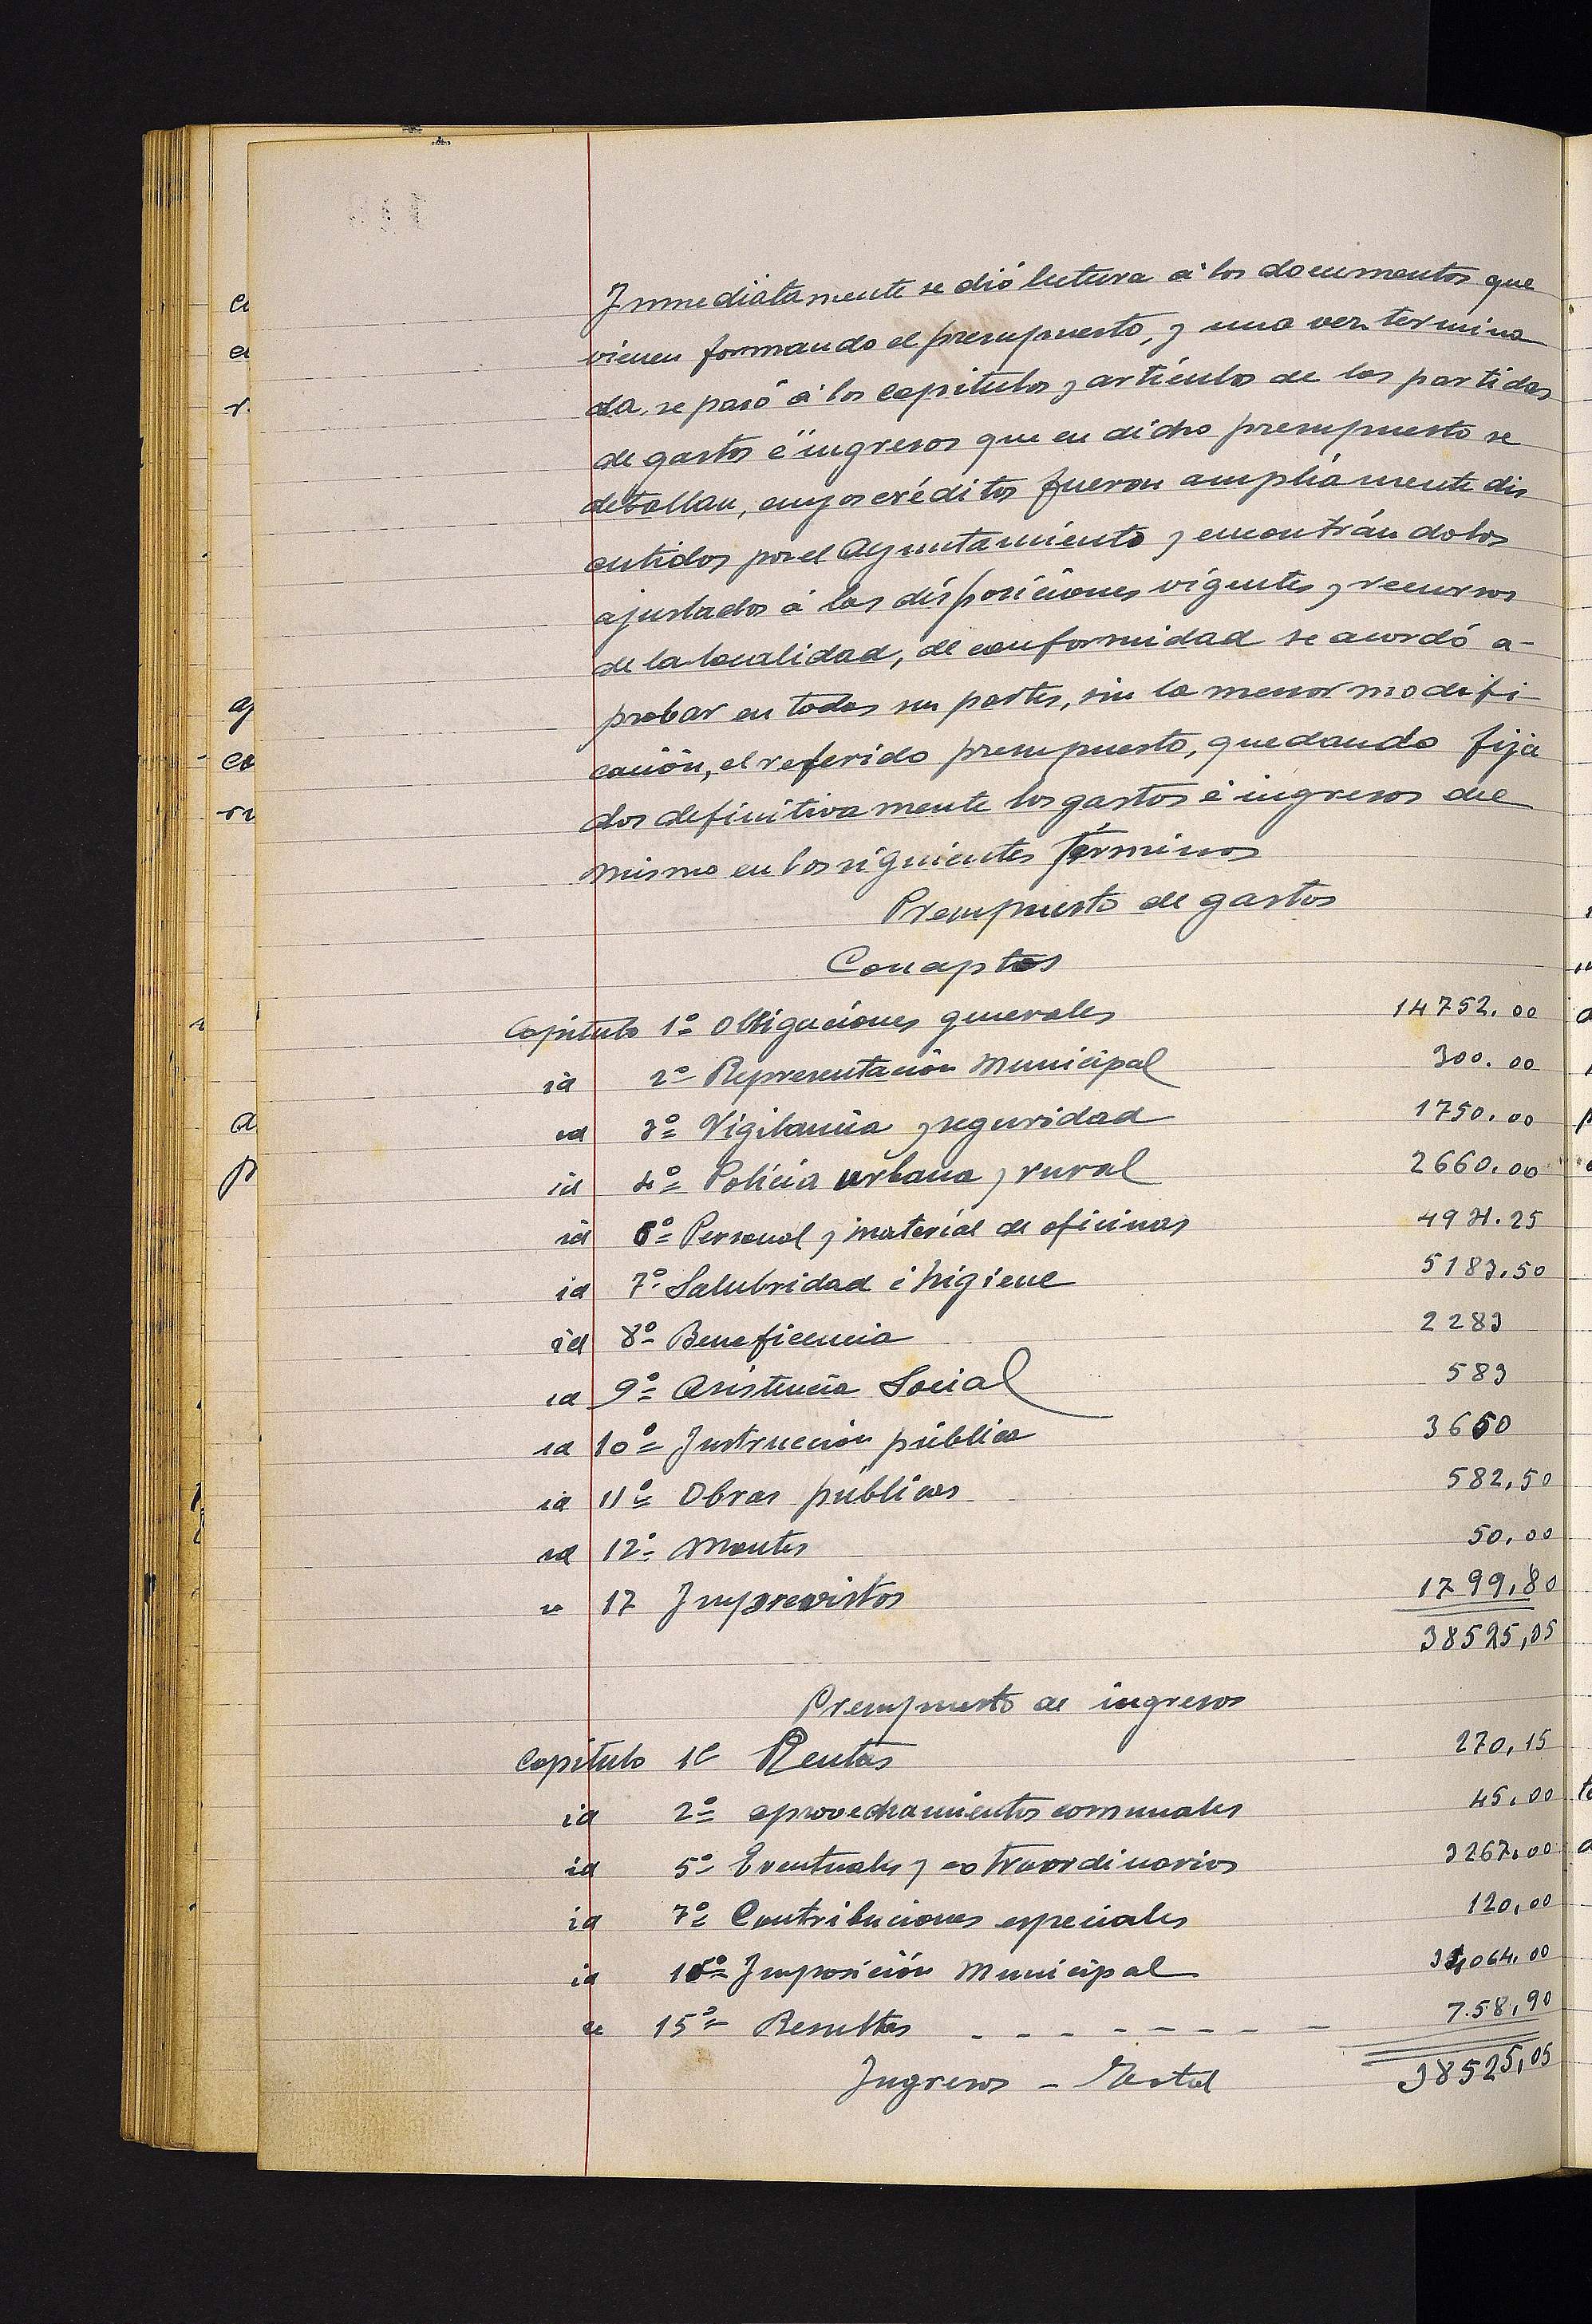 Inmediatamente se dió lectura á los documentos que
vienen formando el presupuesto, y una vez termina
da, se pasó á los capitulos y artículos de las partidas
de gastos é ingresos que en dicho presupuesto se
detallan, cuyos créditos fueron ampliamente dis
cutidos por el Ayuntamiento y encontrándolos
ajustados á las disposiciones vigentes y recursos
de la localidad, de conformidad se acordó a-
probar en todas sus partes, sin la menor modifi-
cación, el referido presupuesto, quedando fija
dos definitivamente los gastos é ingresos del
mismo en los siguientes términos
Presupuesto de gastos
Conceptos
Capitulo 1º Obligaciones generales 14752.00
id 2º Representación Municipal 300.00
id 3º Vigilancia y seguridad 1750.00
id 4º Policia urbana y rural 2660.00
id 6º Personal y material de oficinas 4931.25
id 7º Salubridad é higiene 5183.50
id 8º Beneficencia 2283
id 9º Asistencia Social 583
id 10º Instrucción pública 3650
id 11º Obras públicas 582,50
id 12º Montes 50,00
" 17 Imprevistos 1799,80
38525,05
Presupuesto de ingresos
Capitulo 1º Rentas 270,15
id 2º aprovechamientos comunales 45,00
id 5º Eventuales y extraordinarios 3267,00
id 7º Contribuciones especiales 120,00
id 10º Imposición Municipal 34,064.00
" 15º Resultas - - - - - - - - - 7.58,90
Ingresos - Total 38525,05